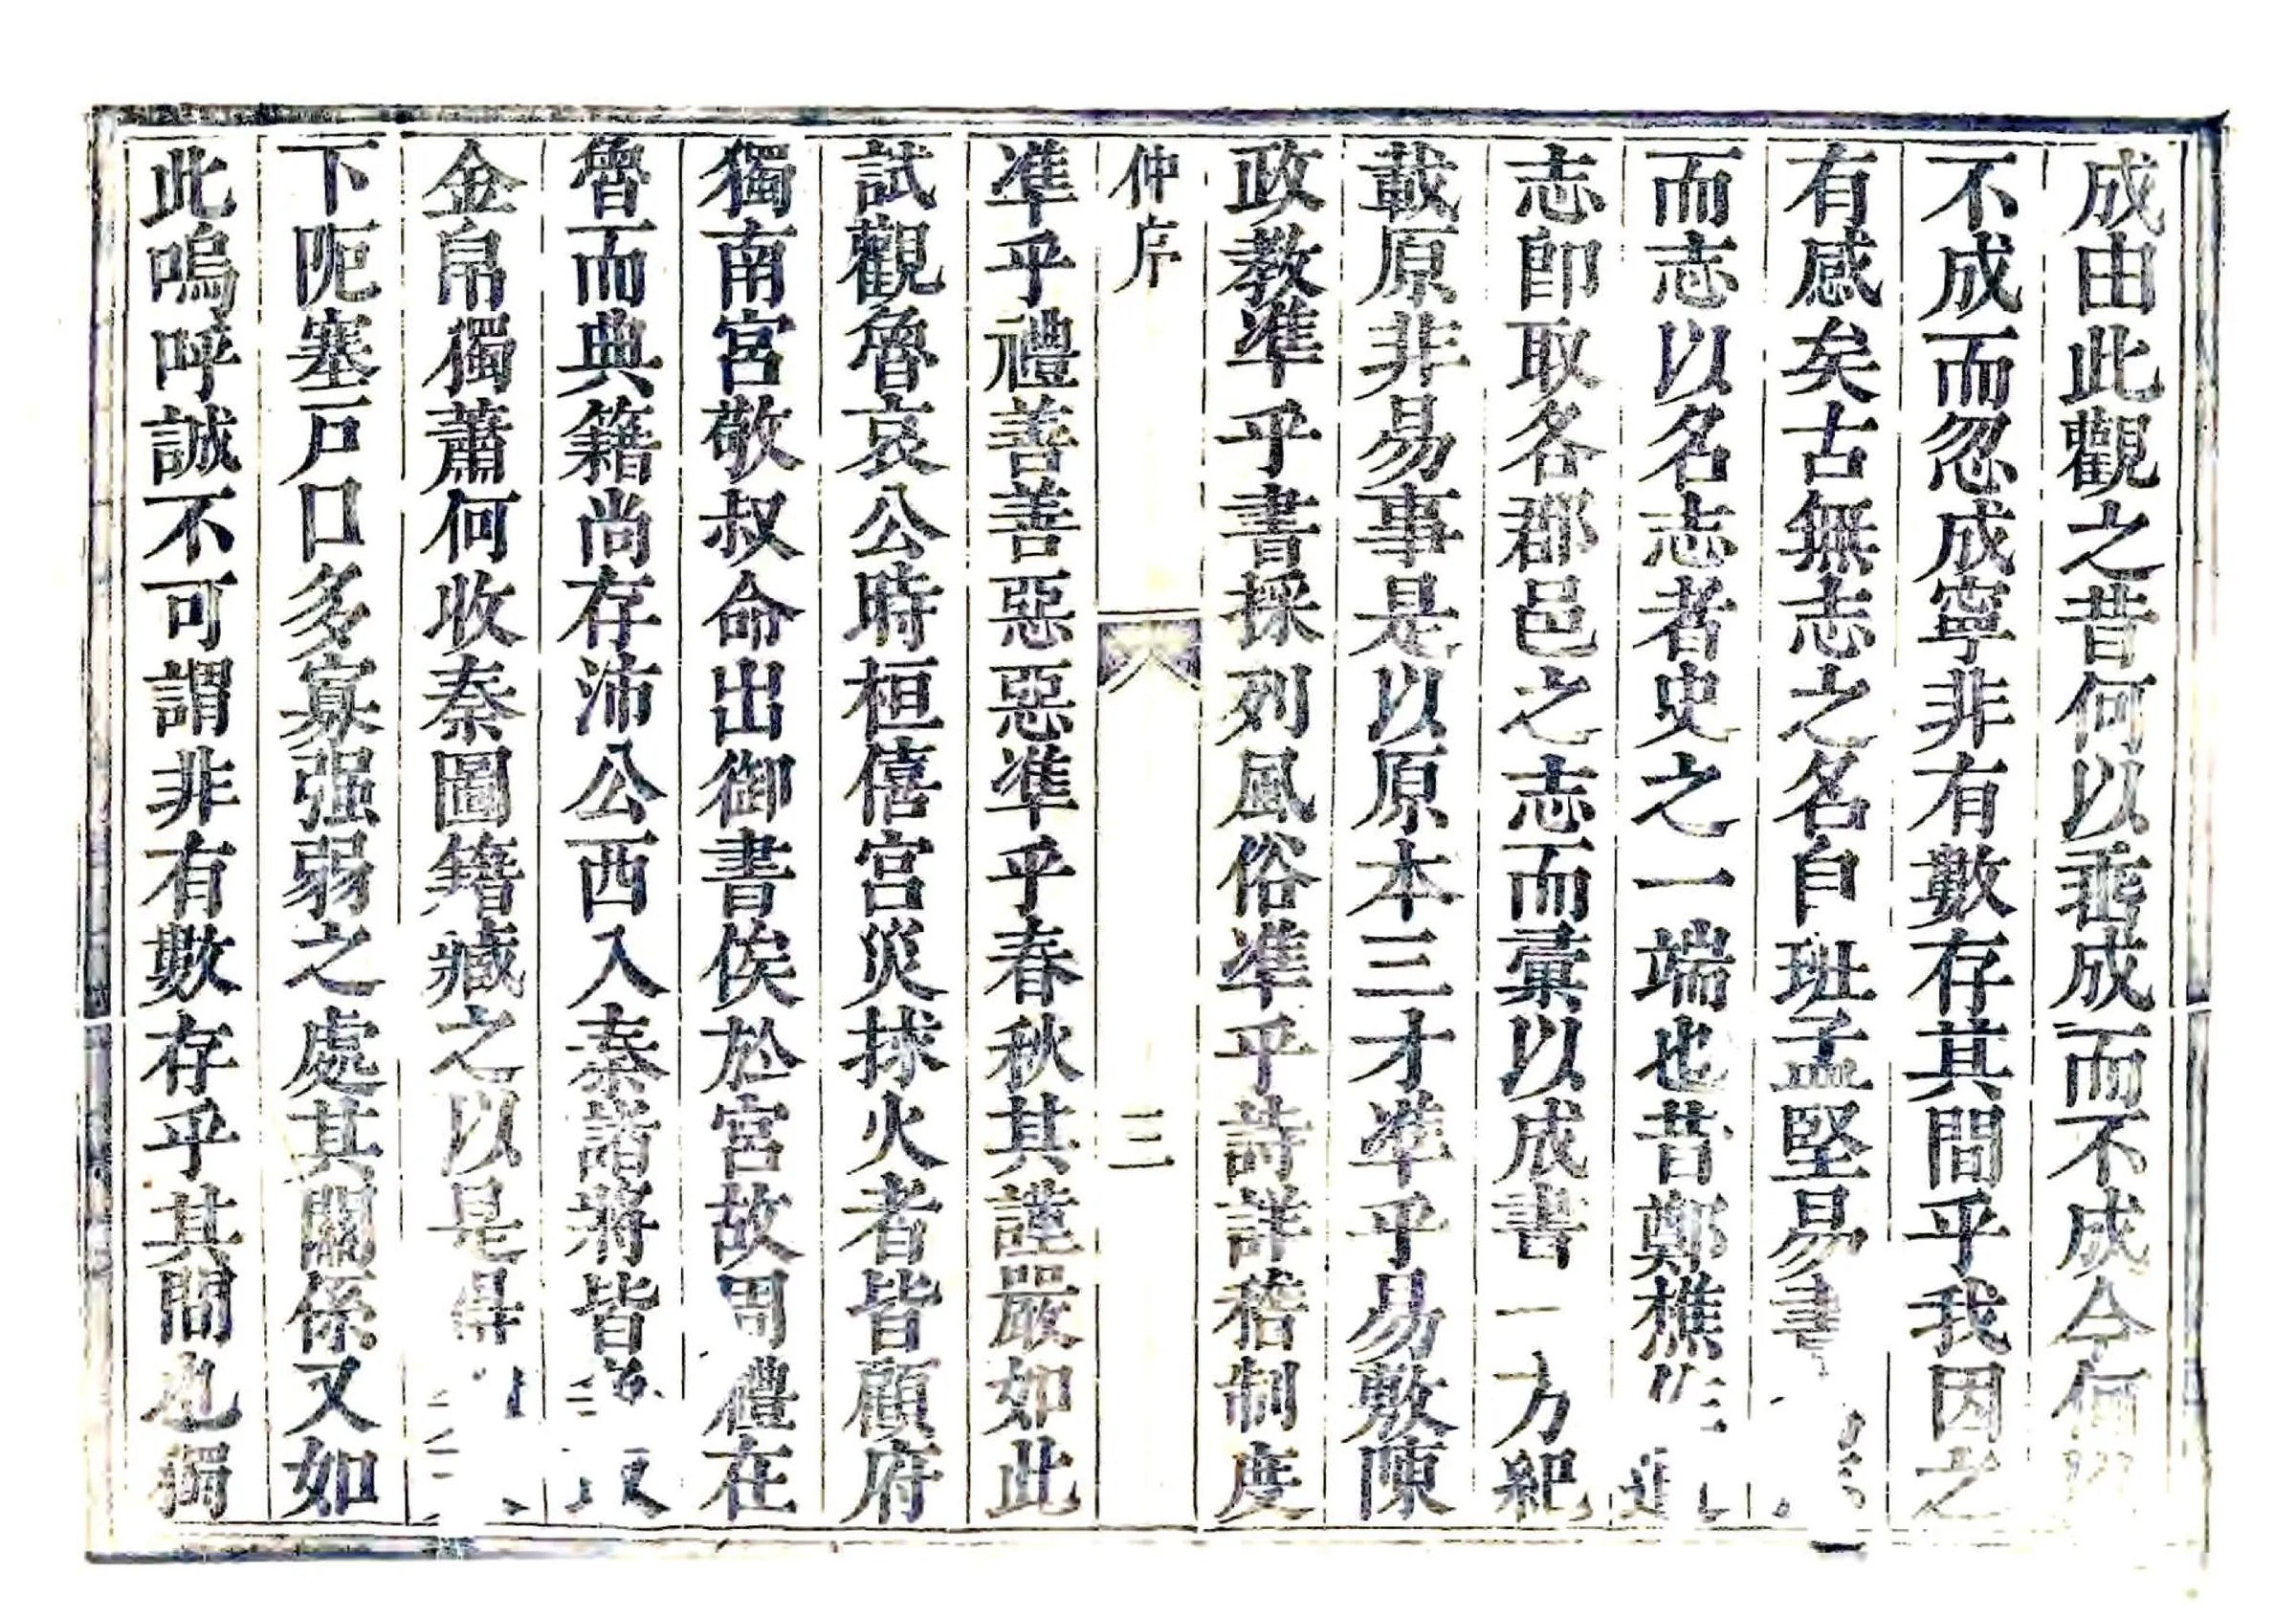 成由此觀之昔何以垂成而不成今何
不成而忽成寧非有數存其間乎我因之
有感矣古無志之名自班孟堅易書
而志以名志者史之一端也昔鄭樵
志卽取各郡邑之志而彙以成書一方紀
載原非易事是以原本三才凖乎易敷陳
政教凖乎書採列風俗凖乎詩詳稽制度
仲序
三
凖乎禮善善惡惡凖乎春秋其謹嚴如此
試觀魯哀公時桓僖宮災捄火者皆顧府
獨南宮敬叔命出御書俟於宮故周禮在
魯而典籍尚存沛公西入秦諸將皆
金帛獨蕭何收秦圖籍藏之以是得
下阨塞戸口多寡强弱之處其關係又如
此嗚呼誠不可謂非有數存乎其間也獨